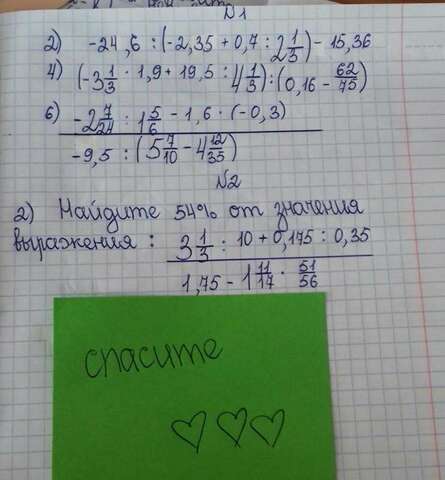 №1
2) -24,6 : (-2,35 + 0,7 : 2 1/3) - 15,36
4) (-3 1/3 · 1,9 + 19,5 : 4 1/3) : (0,16 - 62/75)
6) -2 7/24 : 1 5/6 - 1,6 · (-0,3)
-9,5 : (5 7/10 - 4 12/35)
№2
2) Найдите 54% от значения
выражения : 3 1/3 : 10 + 0,175 : 0,35
1,75 - 1 11/17 · 51/56
спасите